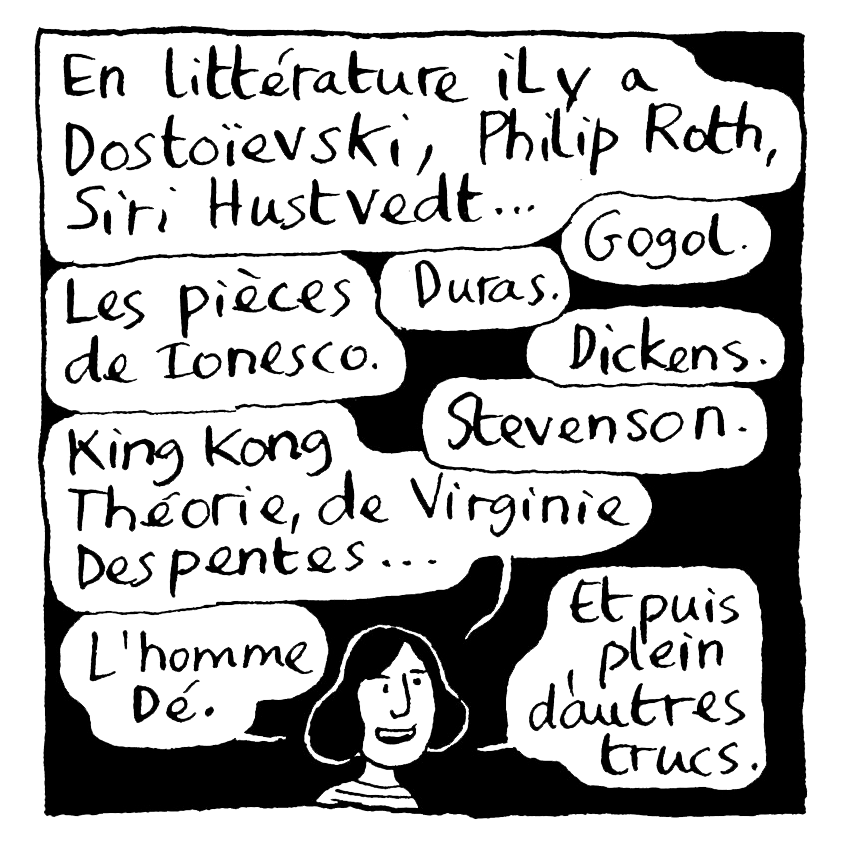 En littérature il y a
Dostoïevski, Philip Roth,
Siri Hustvedt...
Gogol.
Duras.
Les pièces
de Ionesco.
Dickens.
Stevenson.
King Kong
Théorie, de Virginie
Despentes...
L'homme
Dé.
Et puis
plein
d'autres
trucs.